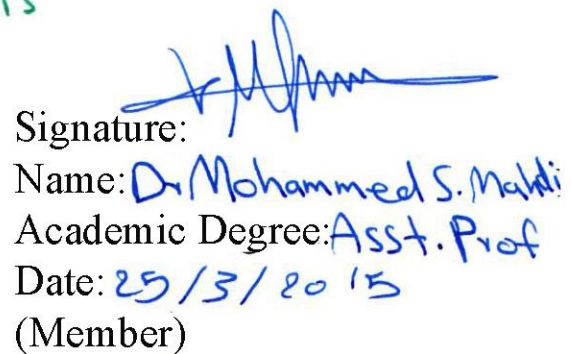 Signature:
Name: Dr Mohammed S. Mahdi
Academic Degree: Asst. Prof
Date: 25/3/2015
(Member)